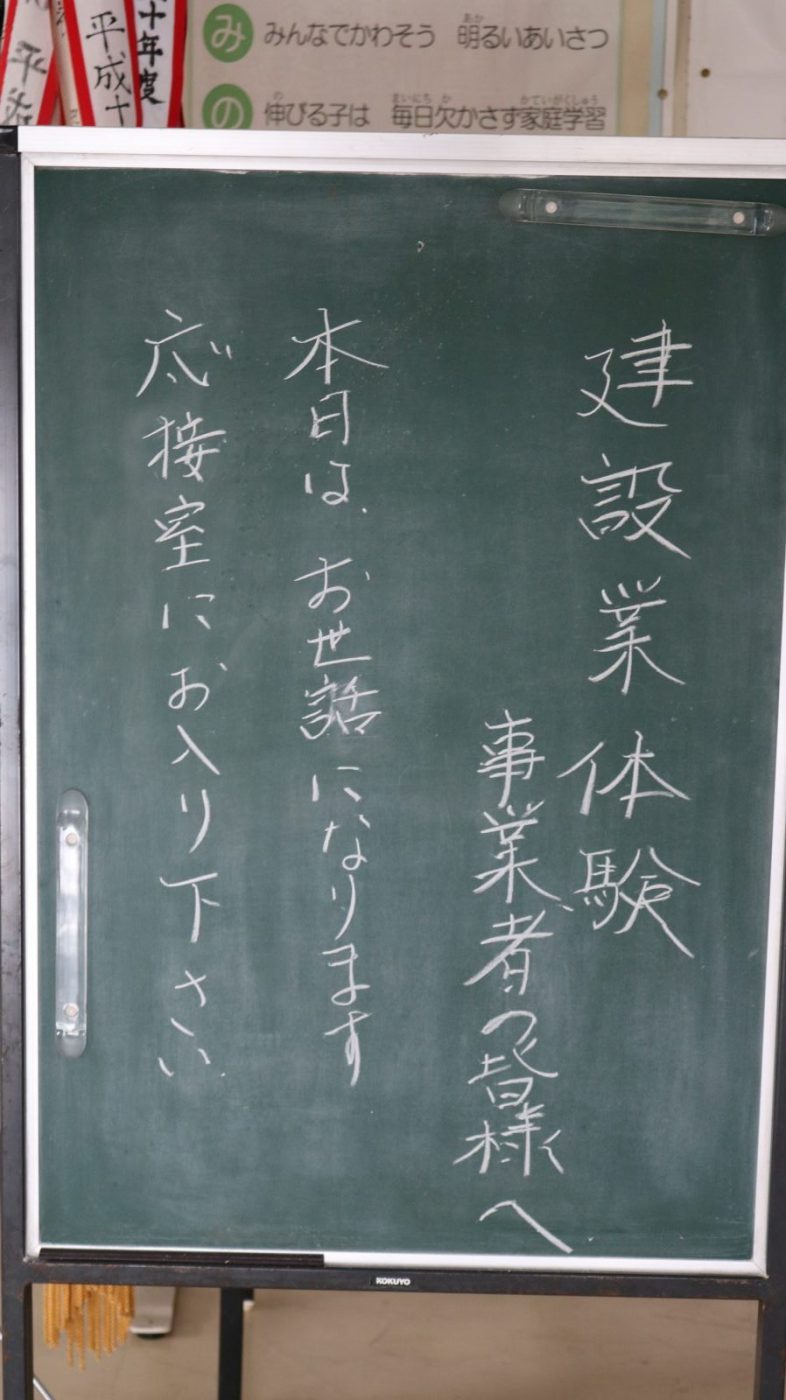 十年度
平成十
平成
み みんなでかわそう 明るいあいさつ
の 伸びる子は 毎日欠かさず家庭学習
建設業体験
事業者の皆様へ
本日は、お世話になります
応接室にお入り下さい。
KOKUYO